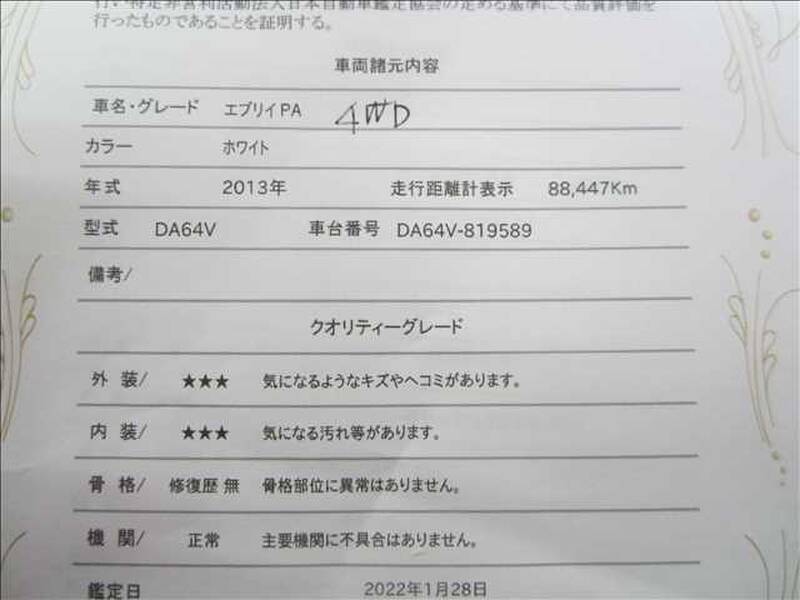 行い特定非営利活動法人日本自動車鑑定協会の定める基準にて品質評価を
行ったものであることを証明する。
車両諸元内容
車名・グレード エブリイPA 4WD
カラー ホワイト
年式 2013年 走行距離計表示 88,447Km
型式 DA64V 車台番号 DA64V-819589
備考/
クオリティーグレード
外 装/ ★★★ 気になるようなキズやヘコミがあります。
内 装/ ★★★ 気になる汚れ等があります。
骨 格/ 修復歴 無 骨格部位に異常はありません。
機 関/ 正常 主要機関に不具合はありません。
鑑定日 2022年1月28日